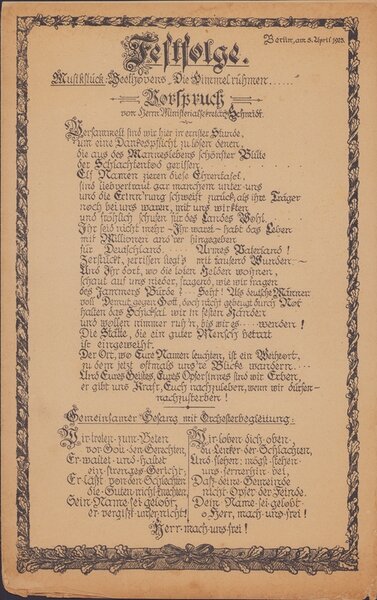 Berlin, am 8. April 1923.
Festfolge.
Musikstück: Beethovens „Die Himmel rühmen .....
Vorspruch
von Herrn Ministerialsekretär Schmidt.
Versammelt sind wir hier in ernster Stunde,
um eine Dankespflicht zu lösen denen,
die aus des Manneslebens schönster Blüte
der Schlachtentod gerissen.
Elf Namen zieren diese Ehrentafel,
sind lieb vertraut gar manchem unter uns
und die Erinn'rung schweift zurück, als ihre Träger
noch bei uns waren, mit uns wirkten
und fröhlich schufen für des Landes Wohl.
Ihr seid nicht mehr – Ihr waret – habt das Leben
mit Millionen and'rer hingegeben
für Deutschland..... Armes Vaterland!
Zerstückt, zerrissen liegt's mit tausend Wunden –
Und Ihr dort, wo die toten Helden wohnen,
schaut auf uns nieder, fragend, wie wir tragen
des Jammers Bürde? ..... Seht! Als deutsche Männer
voll Demut gegen Gott, doch nicht gebeugt durch Not
halten das Schicksal wir in festen Händen
und wollen nimmer ruh'n, bis wir es ..... wenden!
Die Stätte, die ein guter Mensch betrat
ist eingeweiht.
Der Ort, wo Eure Namen leuchten, ist ein Weiheort,
zu dem jetzt oftmals uns're Blicke wandern.....
Und Eures Geistes, Eures Opfersinnes sind wir Erben,
er gibt uns Kraft, Euch nachzuleben, wenn wir dürfen –
nachzusterben!
Gemeinsamer Gesang mit Orchesterbegleitung:
Wir treten zum Beten
vor Gott den Gerechten,
Er waltet und haltet
ein strenges Gericht;
Er läßt von den Schlechten
die Guten nicht knechten,
Sein Name sei gelobt,
er vergißt unser nicht!
Wir loben dich oben,
du Lenker der Schlachten,
Und flehen: mögst stehen
uns fernerhin bei,
Daß deine Gemeinde
nicht Opfer der Feinde.
Dein Name sei gelobt
o Herr, mach uns frei!
Herr mach uns frei!